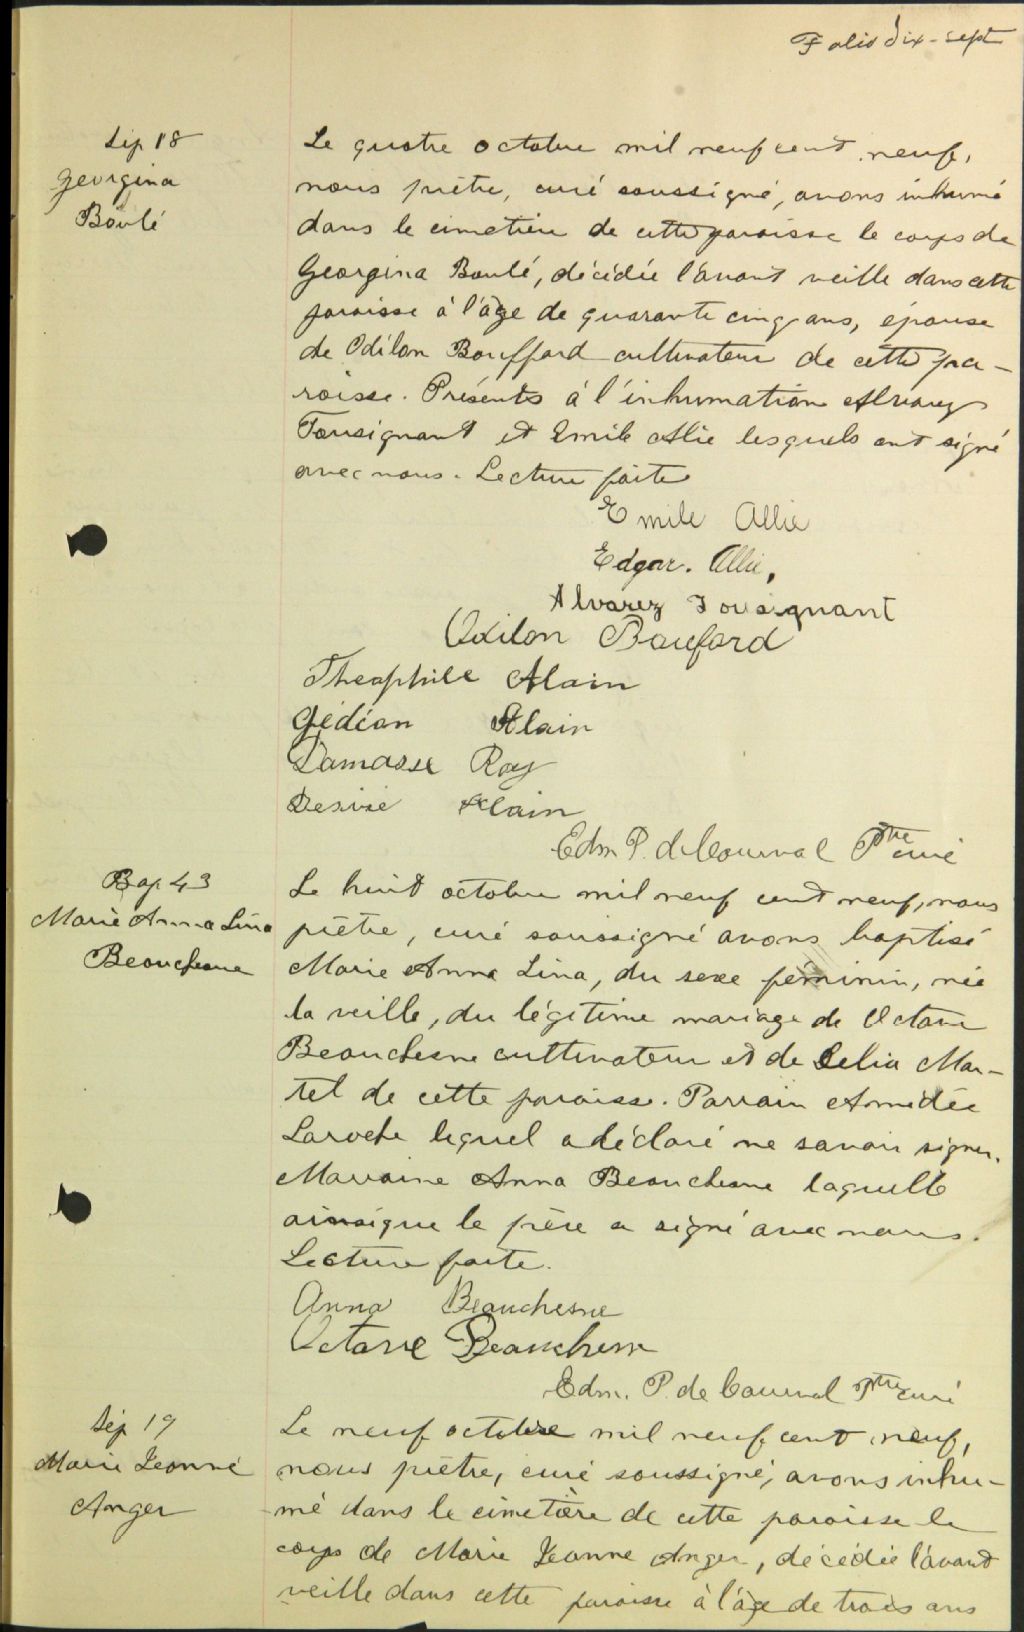 Folio dix-sept
Sép 18
Georgina
Boulé
Le quatre octobre mil neuf cent neuf,
nous prêtre, curé soussigné, avons inhumé
dans le cimetière de cette paroisse le corps de
Georgina Boulé, décédée l'avant veille dans cette
paroisse à l'âge de quarante cinq ans, épouse
de Odilon Bouffard cultivateur de cette pa-
roisse. Présents à l'inhumation Alvarez
Tousignant et Emile Allie lesquels ont signé
avec nous. Lecture faite
Emile Allie
Edgar. Allie,
Alvarez Tousignant
Odilon Bouford
Theophile Alain
Gédéon Alain
Damasse Roy
Desiré Alain
Edm P. de Courval Ptre curé
Bap 43
Marie Anna Lina
Beauchesne
Le huit octobre mil neuf cent neuf, nous
prêtre, curé soussigné avons baptisé
Marie Anna Lina, du sexe féminin, née
la veille, du légitime mariage de Octave
Beauchesne cultivateur et de Célia Mar-
tel de cette paroisse. Parrain Amédée
Laroche lequel a déclaré ne savoir signer.
Marraine Anna Beauchesne laquelle
ainsi que le père a signé avec nous.
Lecture faite.
Anna Beauchesne
Octave Beauchesne
Edm. P. de Courval Ptre curé
Sép 19
Marie Jeanne
Anger
Le neuf octobre mil neuf cent neuf,
nous prêtre, curé soussigné, avons inhu-
mé dans le cimetière de cette paroisse le
corps de Marie Jeanne Anger, décédée l'avant
veille dans cette paroisse à l'âge de trois ans